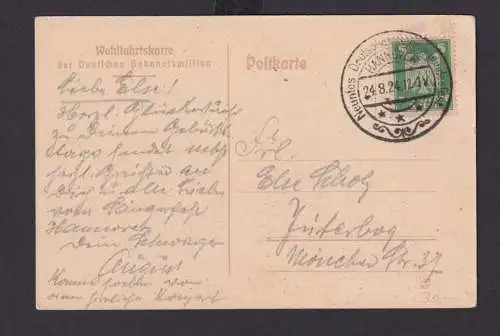 Wohlfahrtskarte
der Deutschen Gebensfamilien
Postkarte
Liebe Else!
Herzl. Glückwünsche
zu Deinem Geburts-
tage sendet nebst
herzl. Grüßen an
Dir u. alle Lieben
vom Sängerfest
Hannover
Dein Schwager
August
Komme soeben von
einem Konzert
Neuntes Deutsches
HANN
24.8.24.12-1N
Frl.
Else Scholz
Jüterbog
Mönchen Str. 37
30.-